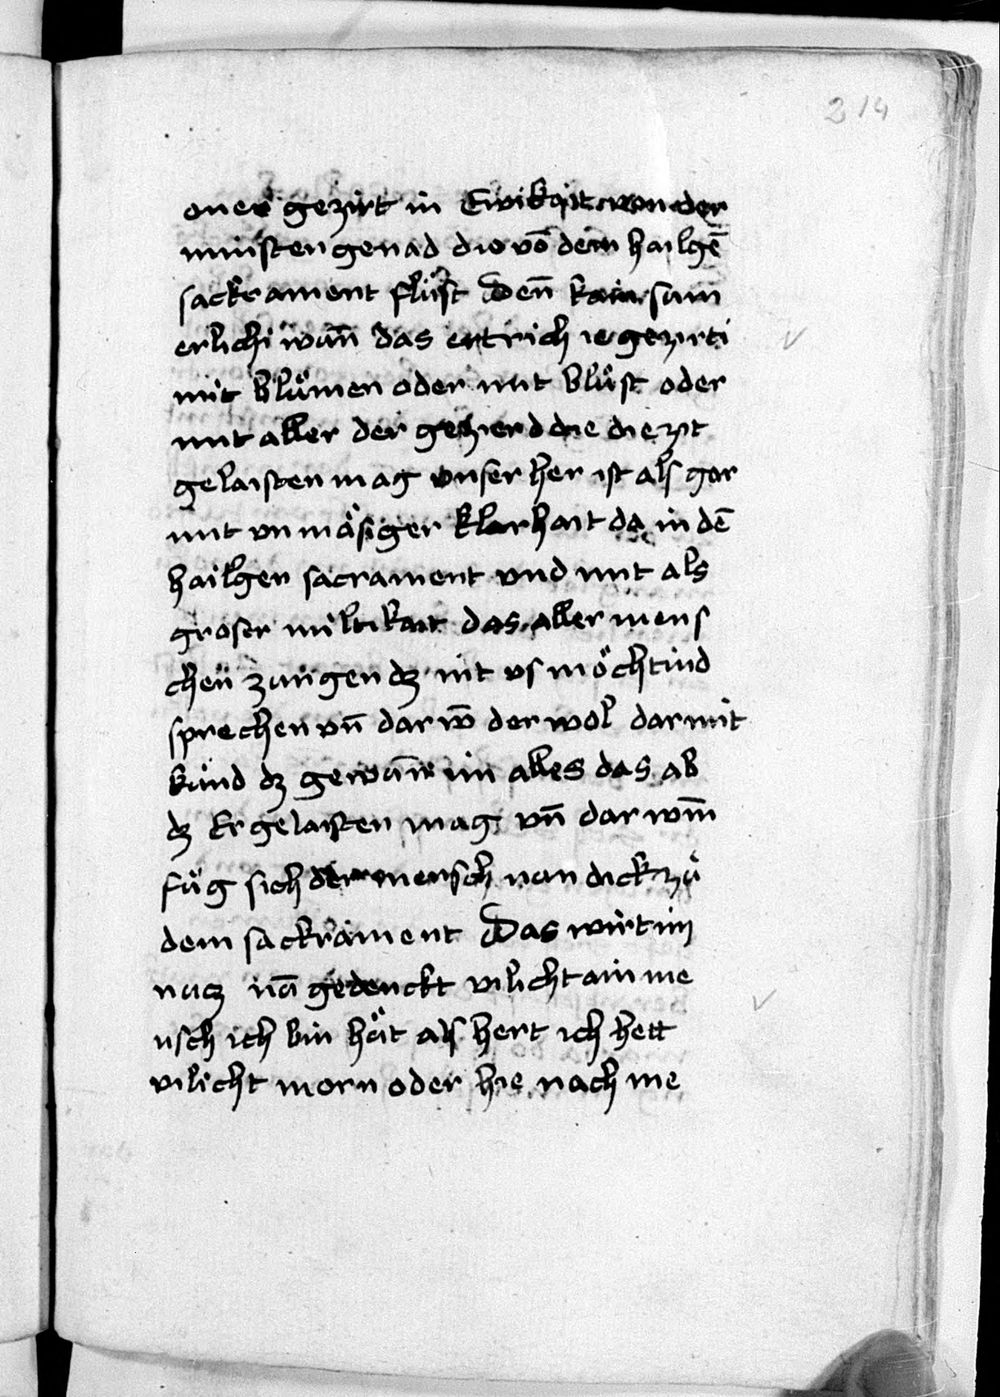 214
oner gezirt in Ewikait von der
minsten genad die võ dem hailgē
sackrament flüst Denn kain sum
erlichi wañ das ertrich ie gezirti
mit blůmen oder mit blůst oder
mit aller der gezierd die die zit
gelaisten mag vnser her ist als gar
mit vnmäsiger klarhait da in dē
hailgen sacrament vnd mit als
groser miltikait das aller mens
chen zungen dz nit vs möchtind
sprechen vñ dar vm̄ der wol dar mit
kund dz gewun̄ im alles das ab
dz Er gelaisten mag vñ dar vm̄
füg sich der mensch nun dick zů
dem sackrament Das wirt im
nucz nũ gedenckt vilicht ain me
nsch ich bin hüt als hert ich hett
vilicht morn oder hie nach me